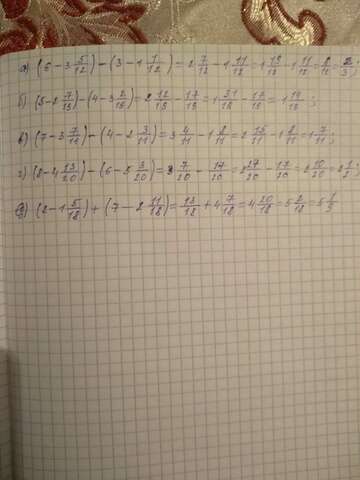 а) (6-3 5/12)-(3-1 1/12)=2 7/12-1 11/12=1 19/12-1 11/12=8/12=2/3;
б) (5-2 7/15)-(4-3 2/15)=2 12/15-17/15=1 31/18-17/15=1 14/15;
в) (7-3 7/11)-(4-2 3/11)=3 4/11-1 8/11=2 15/11-1 8/11=1 7/11;
г) (8-4 13/20)-(6-5 3/20)=3 7/20-17/20=2 27/20-17/20=2 10/20=2 1/2;
д) (2-1 5/18)+(7-2 11/18)=13/18+4 7/18=4 20/18=5 2/18=5 1/9